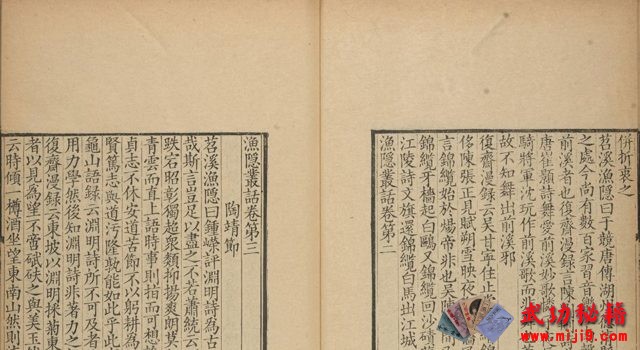 併折衷之
苕溪漁隱曰于兢唐傳湖州
之處今尚有數百家習音
前溪者也復齋漫錄言陳
唐崔顥詩舞愛前溪妙歌
騎將軍沈玩作前溪歌而非
故不知舞出前溪邪
復齋漫錄云吳甘寧住止
侈陳張正見賦朔雪映夜
言錦纜始於煬帝非也吳
錦纜牙檣起白鷗又錦纜回沙磧
江陵詩文旗還錦纜白馬出江城
漁隱叢話卷第二
漁隱叢話卷第三
陶靖節
苕溪漁隱曰鍾嶸評淵明詩為古
哉斯言豈足以盡之不若蕭統云
跌宕昭彰獨超衆類抑揚爽朗莫
青雲而直上語時事則指而可想
貞志不休安道苦節不以躬耕為
賢篤志與道汙隆孰能如此乎此
龜山語錄云淵明詩所不可及者
用力學然後知淵明詩非著力之
復齋漫錄云東坡以淵明採菊東
者以見為望不啻碔砆之與美玉
云時傾一樽酒坐望東南山然則
武功秘籍
www.miji9.com